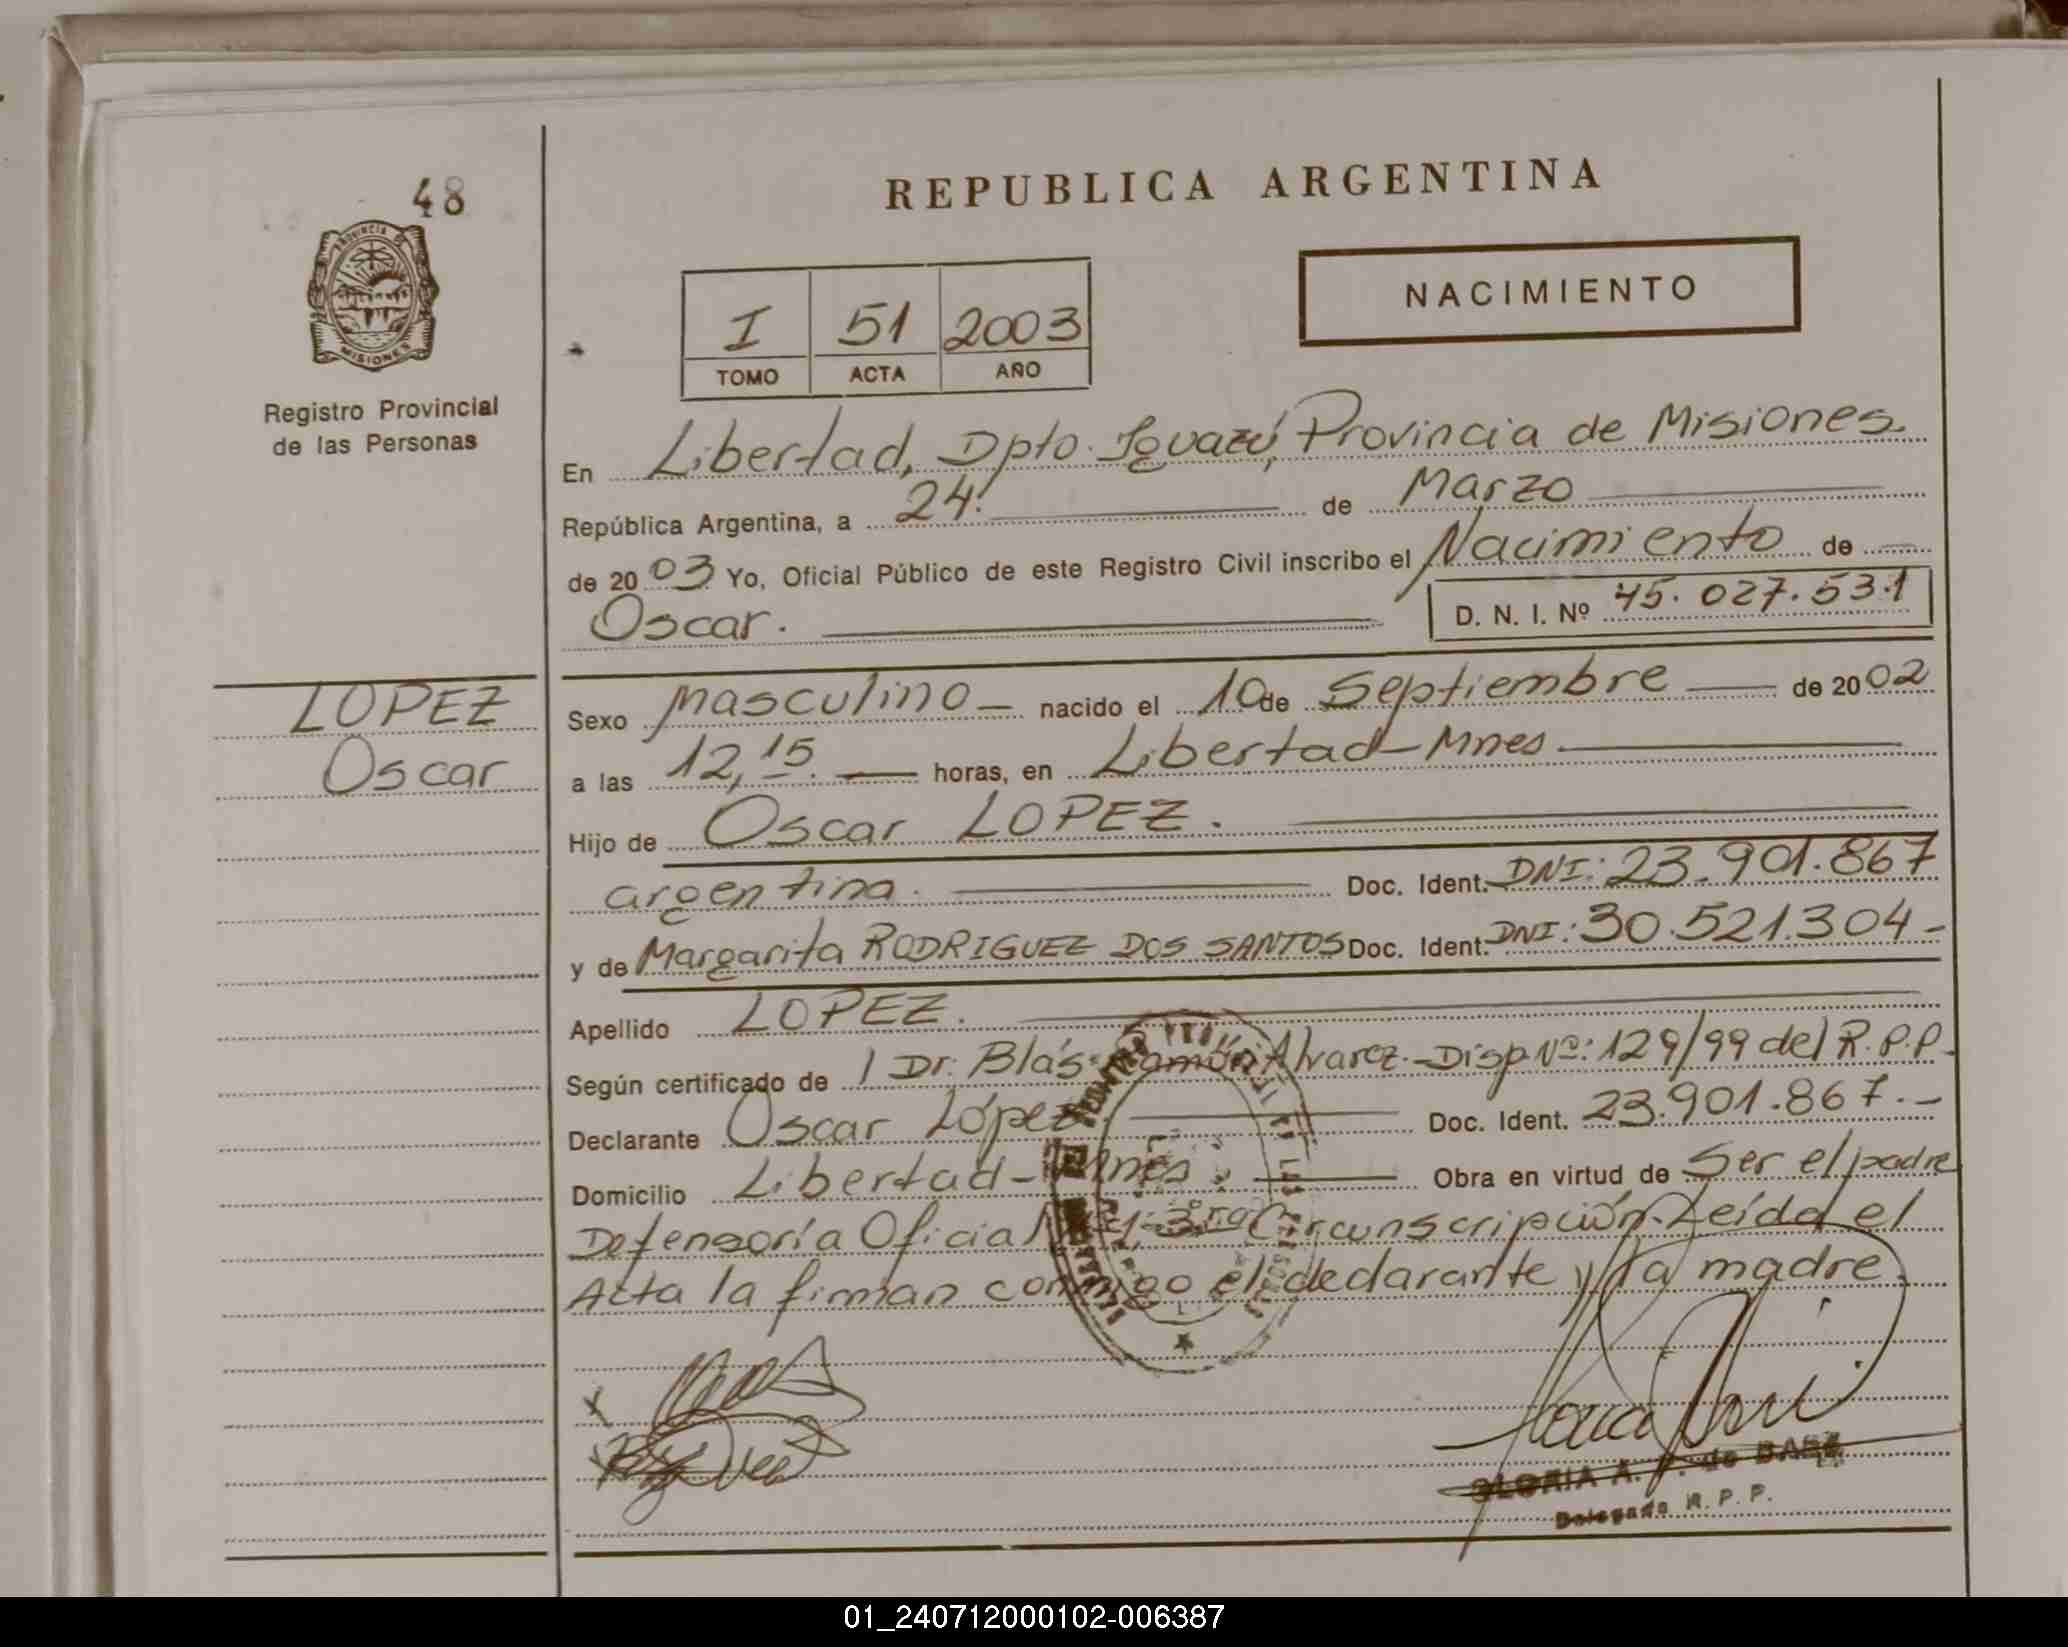 48
REPUBLICA ARGENTINA
NACIMIENTO
I 51 2003
TOMO ACTA AÑO
PROVINCIA DE
MISIONES
Registro Provincial
de las Personas
En Libertad, Dpto. Iguazú, Provincia de Misiones.
República Argentina, a 24. de Marzo
de 2003 Yo, Oficial Público de este Registro Civil inscribo el Nacimiento de
Oscar.
D. N. I. Nº 45.027.531
LOPEZ
Oscar
Sexo masculino nacido el 10 de Septiembre de 2002
a las 12,15. horas, en Libertad-Mnes
Hijo de Oscar LOPEZ.
argentina. Doc. Ident. DNI: 23.901.867
y de Margarita RODRIGUEZ DOS SANTOS Doc. Ident. DNI: 30.521.304-
Apellido LOPEZ.
Según certificado de Dr. Blás Ramón Alvarez.-Disp.Nº: 129/99 del R.P.P.
Declarante Oscar López Doc. Ident. 23.901.867.-
Domicilio Libertad-Mnes. Obra en virtud de Ser el padre
Defensoría Oficial 3ra Circunscripción. Leída el
Acta la firman conmigo el declarante y la madre
GLORIA A. de BAEZ
Delegada R. P. P.
01_240712000102-006387